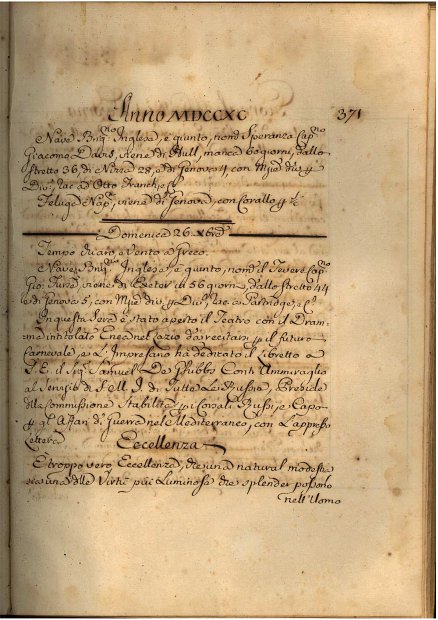 Anno MDCCXC 371
Nave Bnq.no Inglesa, è giunto, nom.o Speranza Cap.no
Giacomo Davis, viene di Hull, manca 60 giorni, dallo
Stretto 36, di Nizza 28, e di Genova 4 con
Div.i, Otto Franchi e C.i
Feluga Nap., viene di Genova, con Corallo
Domenica 26 Xbre
Tempo vento a Greco.
Nave Bnq.no Inglesa, è giunto, nom.o il Tevere Cap.no
viene di Exeter in 56 giorni, dallo Stretto 44
e di Genova 5, con Partridge, e C.i
In questa Sera è stato aperto il Teatro con il Dram-
ma intitolato Enea nel Lazio da recitarsi il futuro
Carnevale, e L'Impresario ha dedicato il Libretto a
S. E. il Sig. Samuel Conte Ammiraglio
al Servizio di S. M. I. di Tutte Le Russie, Preside
della Commissione Stabilita Corsali Russi, e Capo
Affari di Guerra nel Mediterraneo, con L'appresso
Lettera
Eccellenza
È troppo vero Eccellenza, che una natural modestia
una delle Virtù più Luminose che splender possono
nell'Uomo